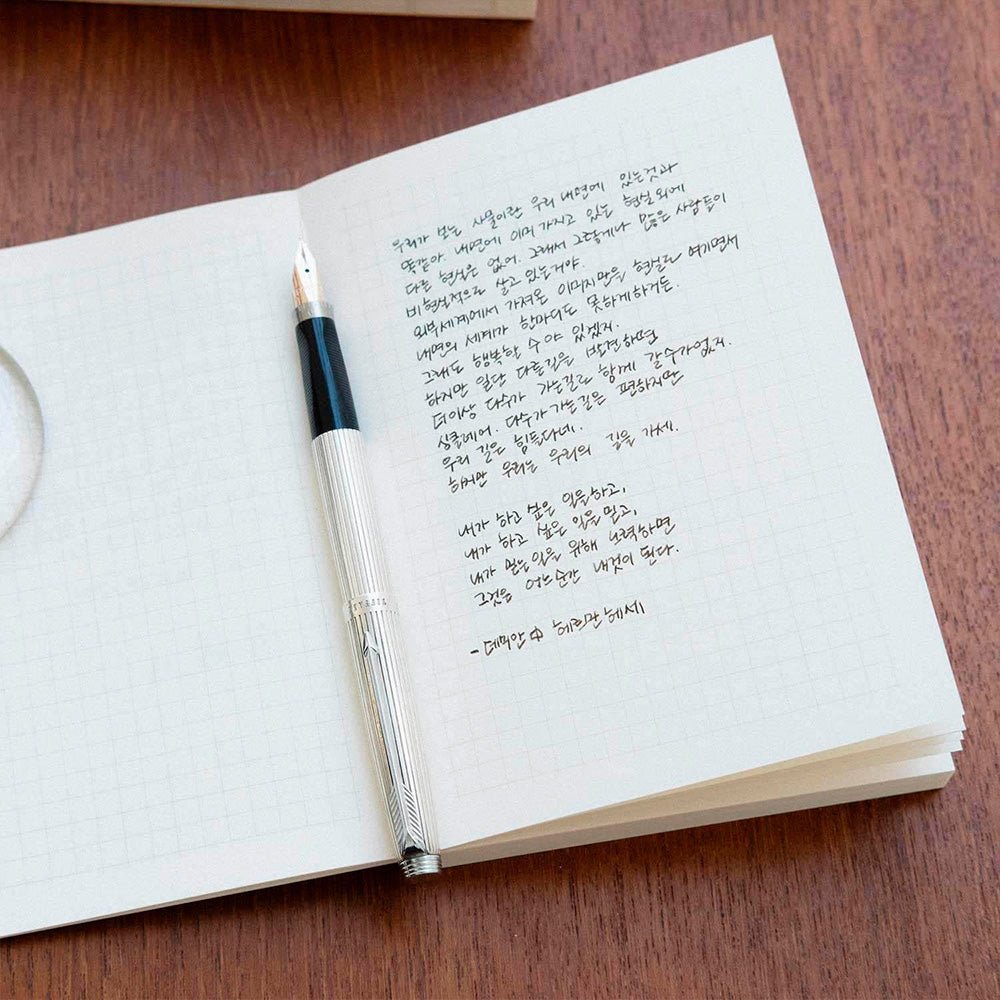 우리가 보는 사물이란 우리 내면에 있는것과
똑같아. 내면에 이미 가지고 있는 현실 외에
다른 현실은 없어. 그래서 그렇게나 많은 사람들이
비현실적으로 살고 있는거야.
외부세계에서 가져온 이미지만을 현실로 여기면서
내면의 세계가 한마디도 못하게하거든.
그래도 행복할 수야 있겠지.
하지만 일단 다른길을 발견하면
더이상 다수가 가는길로 함께 갈수가없지.
싱클레어. 다수가 가는길은 편하지만
우리 길은 힘들다네.
하지만 우리는 우리의 길을 가세.
내가 하고 싶은 일을하고,
내가 하고 싶은 일을 믿고,
내가 믿은일을 위해 노력하면
그것은 어느순간 내것이 된다.
- 데미안 中 헤르만헤세